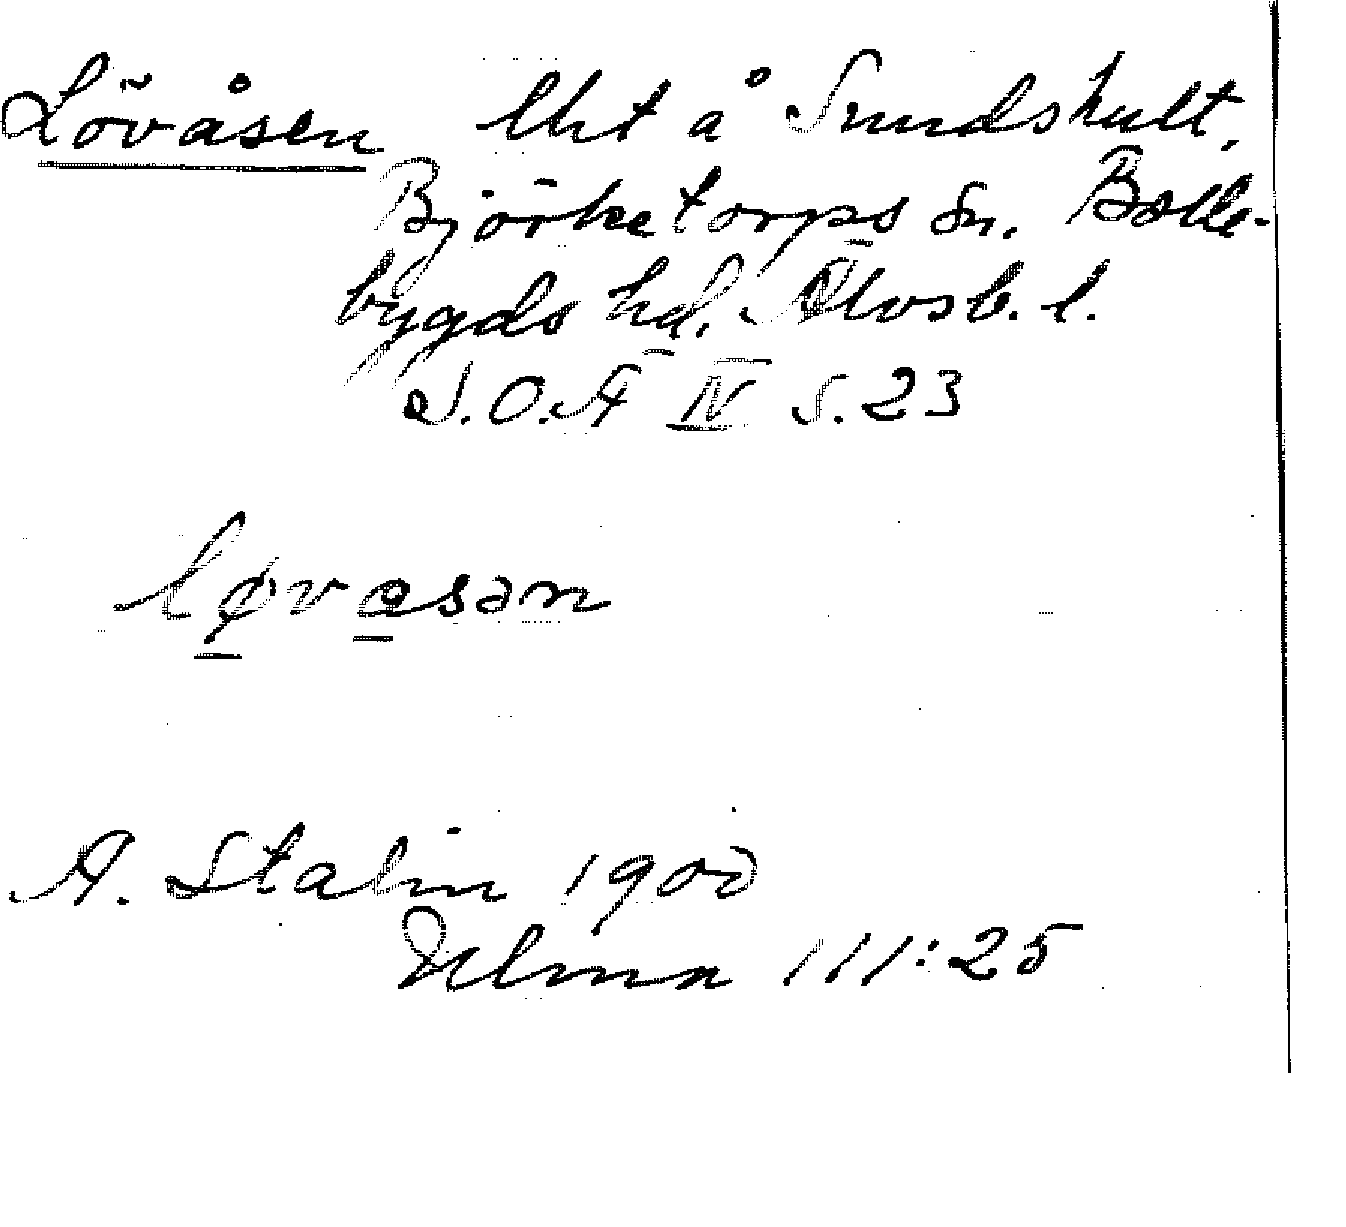 Lövåsen lht å Sundshult,
Björketorps sn. Bolle-
bygds hd. Älvsb. l.
S.O.Ä IV S. 23
løvasən
A. Stalin 1900
Ulma 111:25